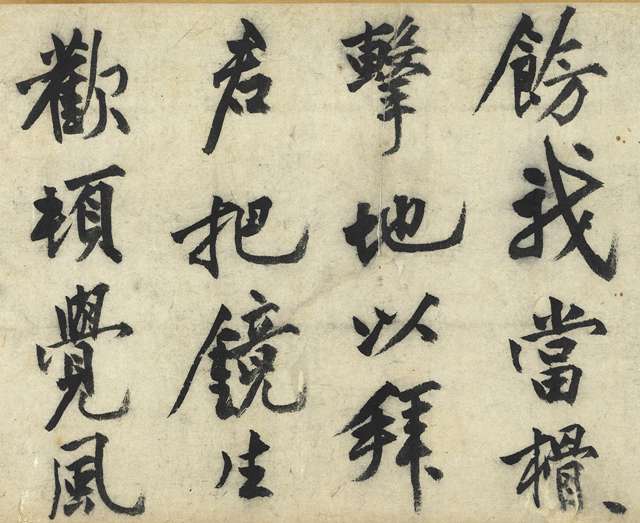 我當
擊地以拜
君把鏡生
歡頓覺風